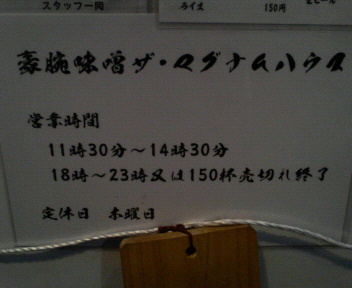 スタッフ一同
ライス 150円
豪腕味噌ザ・マグナムハウス
営業時間
11時30分～14時30分
18時～23時又は150杯売切れ終了
定休日 木曜日